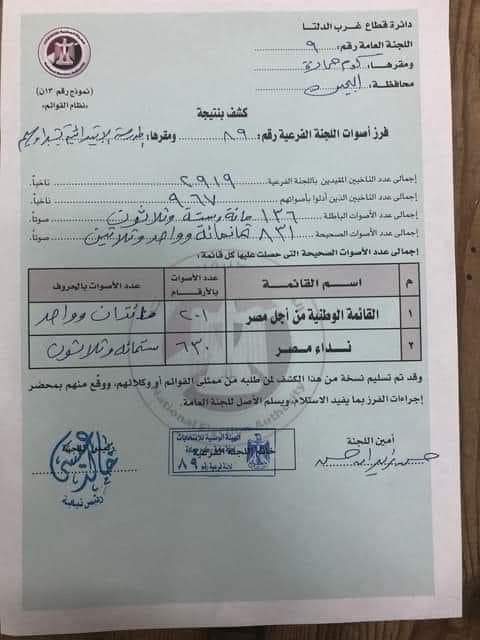 دائرة قطاع غرب الدلتا
اللجنة العامة رقم: ٩
ومقرها: كوم حمادة
محافظة: البحيرة
(نموذج رقم ١٣ن)
«نظام القوائم»
كشف بنتيجة
فرز أصوات اللجنة الفرعية رقم: ٨٩ ومقرها: المدرسة الابتدائية
إجمالى عدد الناخبين المقيدين باللجنة الفرعية ٢٩١٩ ناخباً.
إجمالى عدد الناخبين الذين أدلوا بأصواتهم ٩٦٧ ناخباً.
إجمالى عدد الأصوات الباطلة ١٣٦ مائة وستة وثلاثون صوتاً.
إجمالى عدد الأصوات الصحيحة ٨٣١ ثمانمائة وواحد وثلاثين صوتاً.
إجمالى عدد الأصوات الصحيحة التى حصلت عليها كل قائمة:
م اسم القائمة عدد الأصوات بالأرقام عدد الأصوات بالحروف
١ القائمة الوطنية من أجل مصر ٢٠١ مائتان وواحد
٢ نداء مصر ٦٣٠ ستمائة وثلاثون
وقد تم تسليم نسخة من هذا الكشف لمن طلبه من ممثلى القوائم أو وكلائهم، ووقع منهم بمحضر
إجراءات الفرز بما يفيد الاستلام، ويسلم الأصل للجنة العامة.
أمين اللجنة
الهيئة الوطنية للانتخابات
لجنة فرعية رقم ٨٩
رئيس نيابة